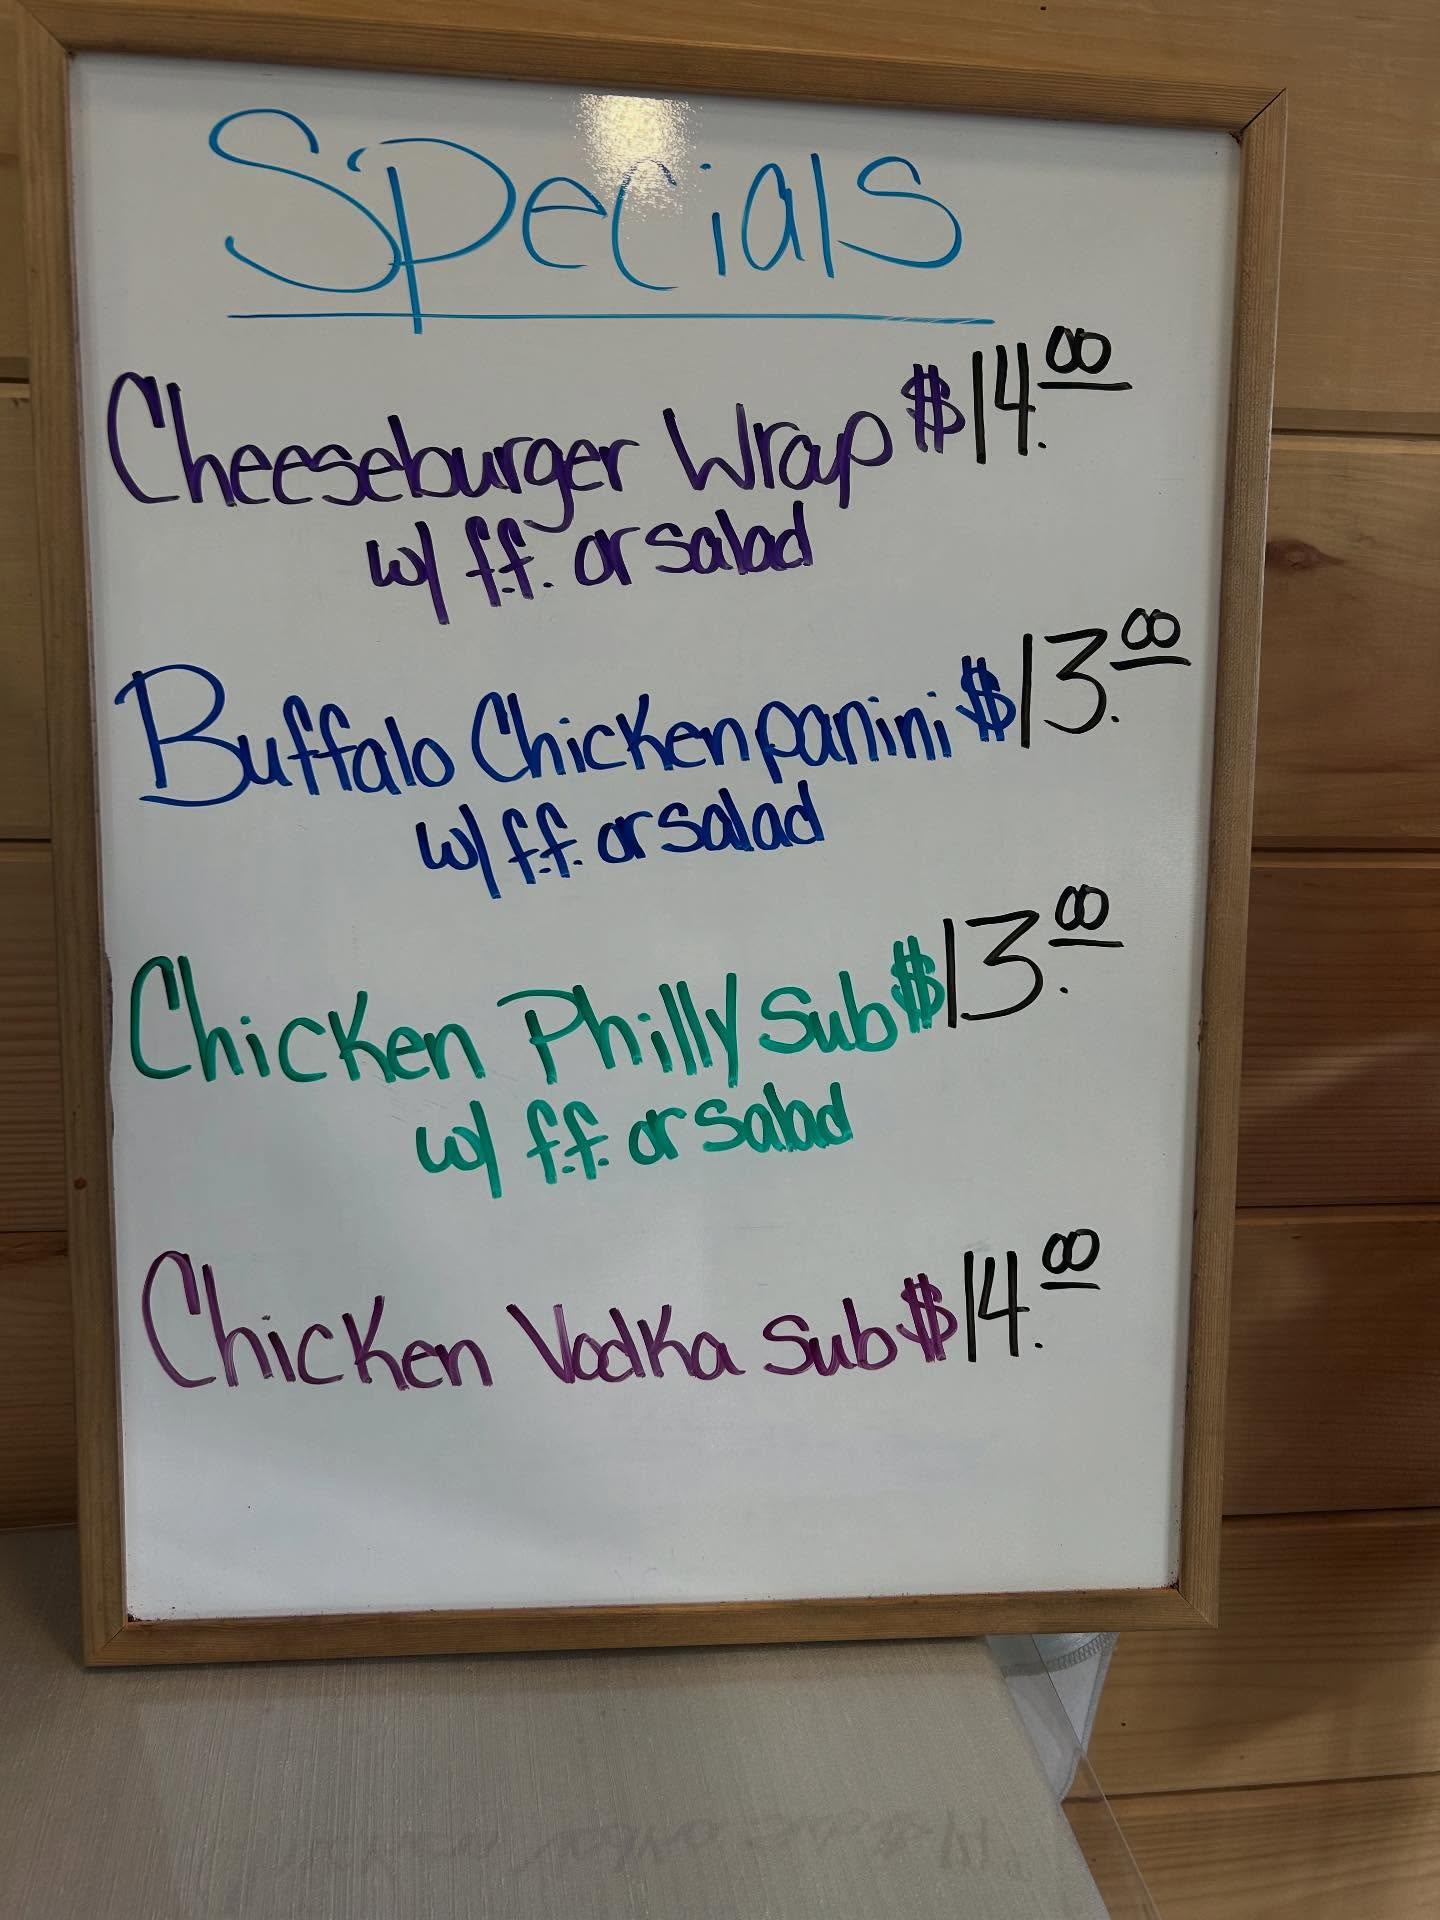 Specials
Cheeseburger Wrap $14.00
w/ f.f. or salad
Buffalo Chicken panini $13.00
w/ f.f. or salad
Chicken Philly Sub $13.00
w/ f.f. or salad
Chicken Vodka Sub $14.00